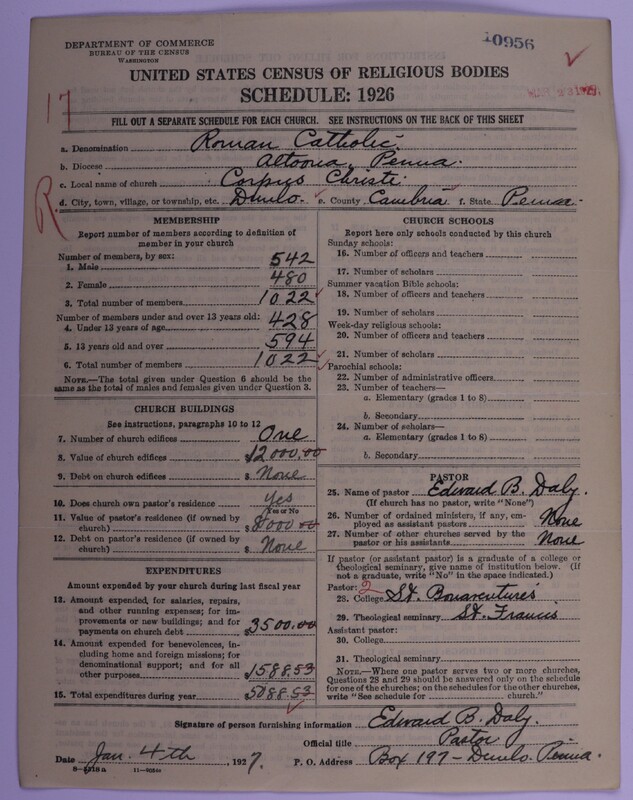 DEPARTMENT OF COMMERCE
BUREAU OF THE CENSUS
WASHINGTON
10956
UNITED STATES CENSUS OF RELIGIOUS BODIES
SCHEDULE: 1926
17
FILL OUT A SEPARATE SCHEDULE FOR EACH CHURCH. SEE INSTRUCTIONS ON THE BACK OF THIS SHEET
a. Denomination Roman Catholic
b. Diocese Altoona, Penna.
c. Local name of church Corpus Christi
d. City, town, village, or township, etc. Dunlo. e. County Cambria f. State Penna.
R
MEMBERSHIP
Report number of members according to definition of member in your church
Number of members, by sex:
1. Male 542
2. Female 480
3. Total number of members 1022
Number of members under and over 13 years old:
4. Under 13 years of age 428
5. 13 years old and over 594
6. Total number of members 1022
NOTE.—The total given under Question 6 should be the
same as the total of males and females given under Question 3.
CHURCH BUILDINGS
See instructions, paragraphs 10 to 12
7. Number of church edifices One
8. Value of church edifices $12000.00
9. Debt on church edifices $ None
10. Does church own pastor's residence Yes
Yes or No
11. Value of pastor's residence (if owned by
church) $8000.00
12. Debt on pastor's residence (if owned by
church) $ None
EXPENDITURES
Amount expended by your church during last fiscal year
13. Amount expended, for salaries, repairs,
and other running expenses; for im-
provements or new buildings; and for
payments on church debt $3500.00
14. Amount expended for benevolences, in-
cluding home and foreign missions; for
denominational support; and for all
other purposes $1588.53
15. Total expenditures during year 5088.53
CHURCH SCHOOLS
Report here only schools conducted by this church
Sunday schools:
16. Number of officers and teachers
17. Number of scholars
Summer vacation Bible schools:
18. Number of officers and teachers
19. Number of scholars
Week-day religious schools:
20. Number of officers and teachers
21. Number of scholars
Parochial schools:
22. Number of administrative officers
23. Number of teachers—
a. Elementary (grades 1 to 8)
b. Secondary
24. Number of scholars—
a. Elementary (grades 1 to 8)
b. Secondary
PASTOR
25. Name of pastor Edward B. Daly.
(If church has no pastor, write "None")
26. Number of ordained ministers, if any, em-
ployed as assistant pastors None
27. Number of other churches served by the
pastor or his assistants None
If pastor (or assistant pastor) is a graduate of a college or
theological seminary, give name of institution below. (If
not a graduate, write "No" in the space indicated.)
Pastor: 2
28. College St. Bonaventures
29. Theological seminary St. Francis
Assistant pastor:
30. College
31. Theological seminary
NOTE.—Where one pastor serves two or more churches,
Questions 28 and 29 should be answered only on the schedule
for one of the churches; on the schedules for the other churches,
write "See schedule for church."
Signature of person furnishing information Edward B. Daly.
Official title Pastor
Date Jan. 4th, 1927. P. O. Address Box 197 - Dunlo. Penna.